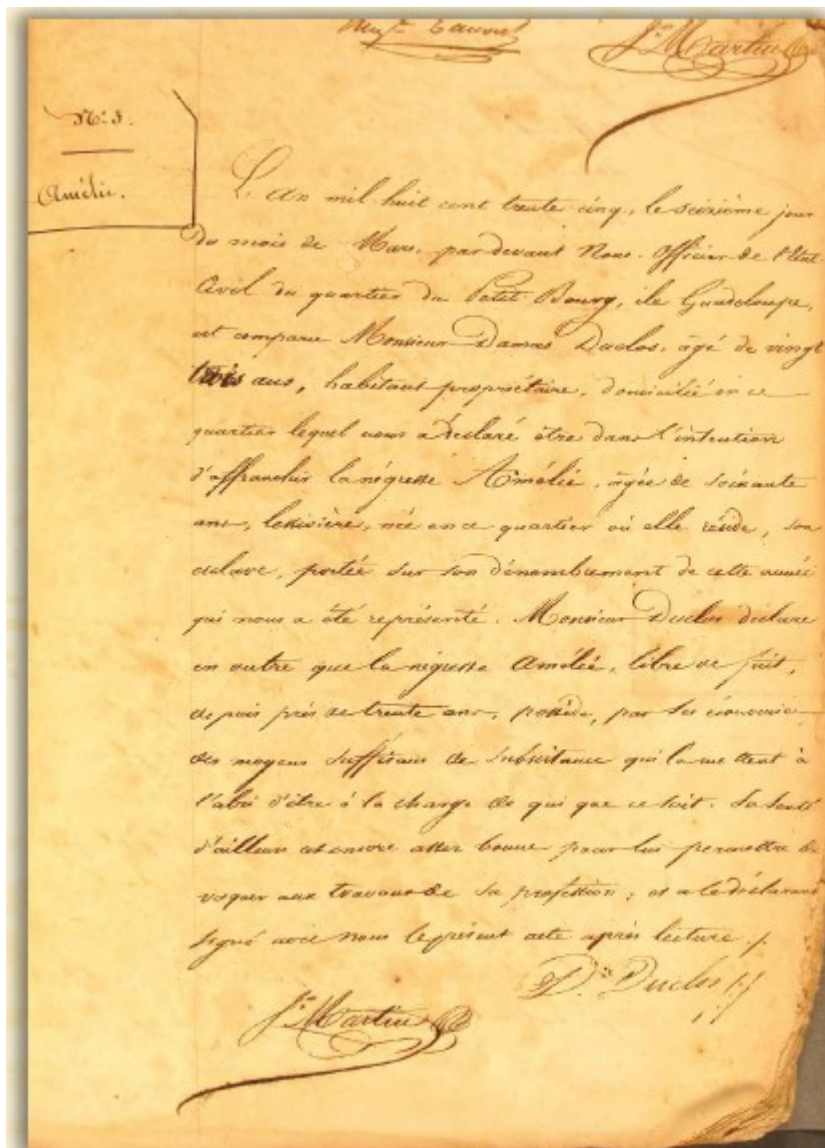 J.n Martin
N.o 3.
Amélie.
L'An mil huit cent trente cinq, le seizième jour
du mois de Mars, par devant Nous Officier de l'Etat
Civil du quartier du Petit Bourg, île Guadeloupe,
est comparu Monsieur Damas Duclos, âgé de vingt
trois ans, habitant propriétaire, domicilié en ce
quartier lequel nous a déclaré être dans l'intention
d'affranchir la négresse Amélie, âgée de soixante
ans, lessivière, née en ce quartier où elle réside, son
esclave, portée sur son dénombrement de cette année
qui nous a été représenté. Monsieur Duclos déclare
en outre que la négresse Amélie, libre de fait,
depuis près de trente ans, possède, par ses économies
des moyens suffisans de subsistance qui la mettent à
l'abri d'être à la charge de qui que ce soit. Sa santé
d'ailleurs est encore assez bonne pour lui permettre de
vaquer aux travaux de sa profession; et a le déclarant
signé avec nous le présent acte après lecture ./.
D.s Duclos
J.n Martin